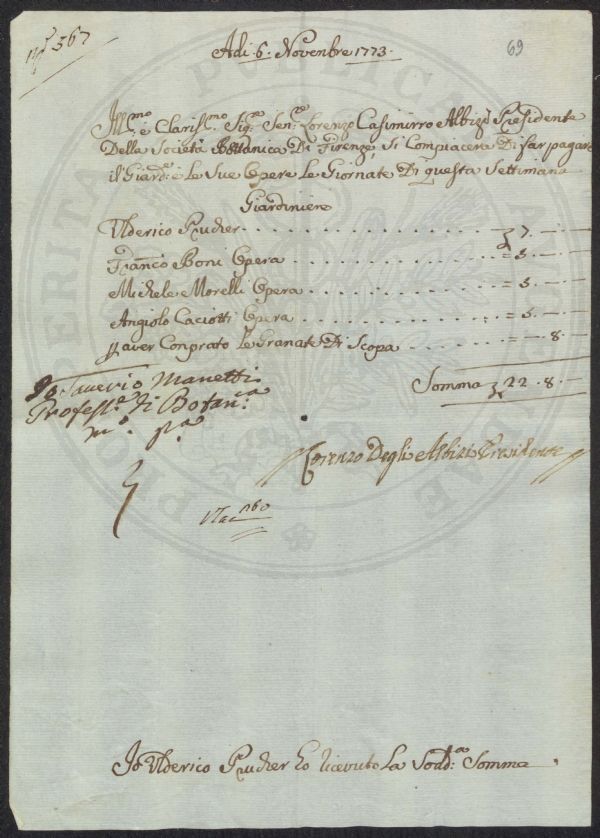 N.° 367
69
Adi. 6. Novenbre 1773.
Ill.mo e Claris.mo Sig.re Sen.re Lorenzo Casimirro Albizi Presidente
Della Societá Bottanica Di Firenze, Si Compiacera Di far pagare
il Giard.e e Le Sue Opere Le Giornate Di questa Settimana
Giardiniere
Ulderico Prucher 7. — —
Franco Boni Opera = 5. — —
Michele Morelli Opera = 5. — —
Angiolo Caciotti Opera = 5. — —
p aver Conprato Le Granate Di Scopa — 8. —
Somma 22. 8. —
Io Saverio Manetti
Profess.e di Botan.ca
m.o p.a
Lorenzo Degli Albizi Presidente
Io Ulderico Prucher Ho ricevuto La Sodd.a Somma